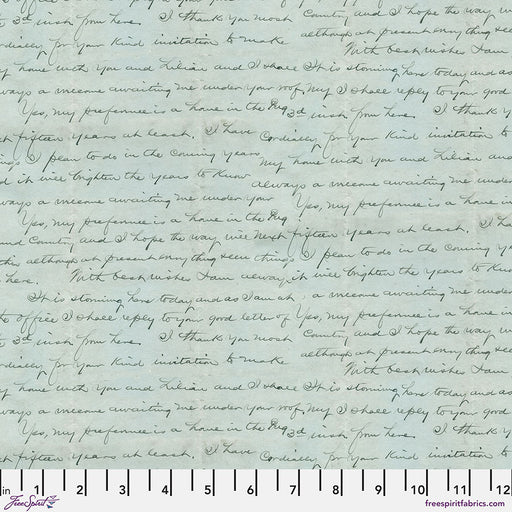 3rd inst from here. I thank you most Country and I hope the way
although at present many thing see
Cordially, for your kind invitation to make
With best wishes I am
my home with you and Lilian and I shall It is storming here today and as
always a welcome awaiting me under your roof. my I shall reply to your good
Yes, my preference is a home in the
3rd inst from here. I thank y
next fifteen years at least. I have Cordially, for your kind invitation to
things I plan to do in the coming years
my home with you and Lilian and
and it will brighten the years to know
always a welcome awaiting me under
always a welcome awaiting me under your Yes, my preference is a home in
Yes, my preference is a home in the
next fifteen years at least. I ha
and Country, and I hope the way will
this although at present many thing seem things I plan to do in the coming y
here. With best wishes I am always, it will brighten the years to know
It is storming here today and as I am at a welcome awaiting me under
the office I shall reply to your good letter of Yes, my preference is a home in
3rd inst from here. I thank you most Country and I hope the way, w
although at present many thing see
Cordially, for your kind invitation to make
With best wishes I am
my home with you and Lilian and I shall It is storming here today and as
always a welcome awaiting me under your roof. my I shall reply to your good
Yes, my preference is a home in the
3rd inst from here. I thank y
next fifteen years at least. I have Cordially, for your kind invitation to
in 1 2 3 4 5 6 7 8 9 10 11 12
FreeSpirit freespiritfabrics.com